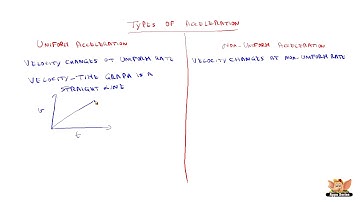 TYPES OF ACCELERATION
UNIFORM ACCELERATION
VELOCITY CHANGES AT UNIFORM RATE
VELOCITY-TIME GRAPH IS A
STRAIGHT LINE
v
t
NON-UNIFORM ACCELERATION
VELOCITY CHANGES AT NON-UNIFORM RATE